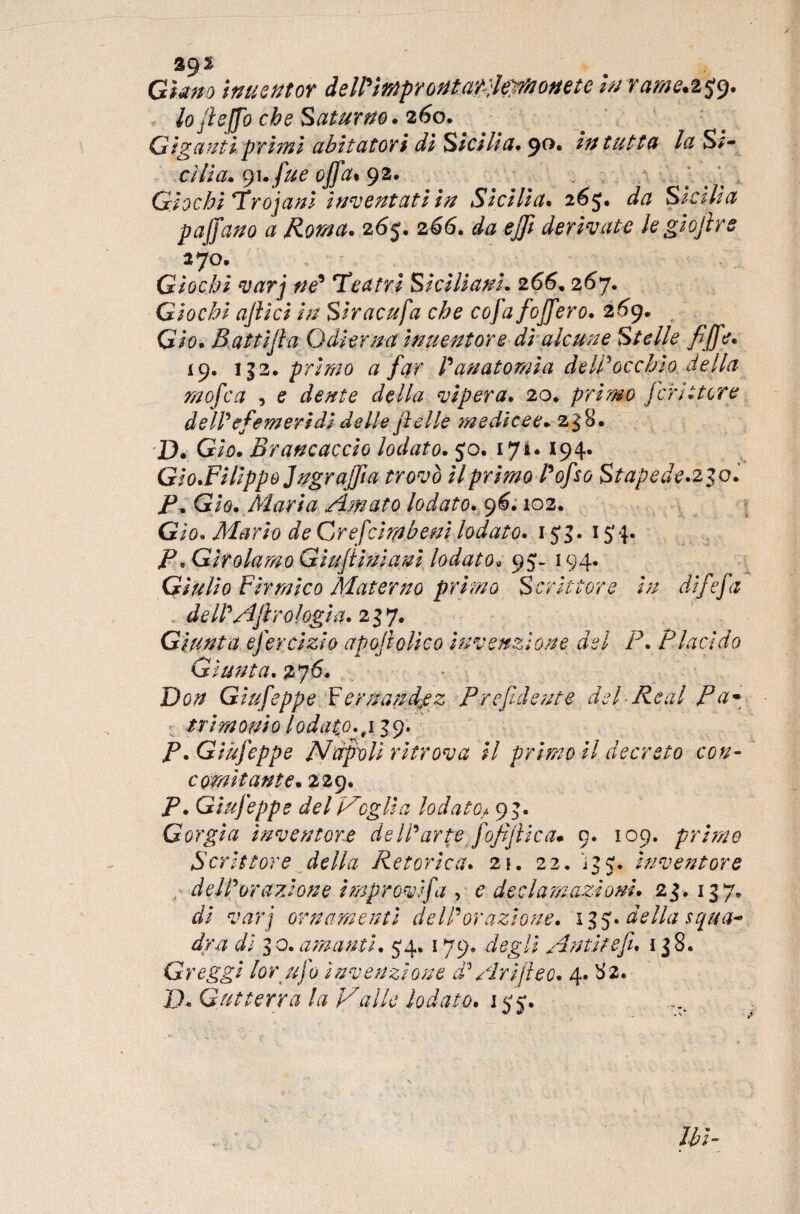 292
Giano inuentor dell'improntar le monete in rame. 259.
lo stesso che Saturno. 260.
Giganti primi abitatori di Sicilia. 90. in tutta la Si-
cilia. 91. sue ossa. 92.
Giochi Trojani inventati in Sicilia. 265. da Sicilia
passano a Roma. 265. 266. da essi derivate le giostre
270.
Giochi varj ne' Teatri Siciliani. 266. 267.
Giochi astici in Siracusa che cosa fossero. 269.
Gio. Battista Odierna inuentore di alcune Stelle fisse.
19. 132. primo a far l'anatomia dell'occhio della
mosca , e dente della vipera. 20. primo scrittore
dell'efemeridi delle stelle medicee. 238.
D. Gio. Brancaccio lodato. 50. 171. 194.
Gio. Filippo Jngrassia trovò il primo l'osso Stapede. 230.
P. Gio. Maria Amato lodato. 96. 102.
Gio. Mario de Crescimbeni lodato. 153. 154.
P. Girolamo Giustiniani lodato. 95- 194.
Giulio Firmico Materno primo Scrittore in difesa
dell'Astrologia. 237.
Giunta esercizio apostolico invenzione del P. Placido
Giunta. 276.
Don Giuseppe Fernandez Presidente del Real Pa-
trimonio lodato. 139.
P. Giuseppe Napoli ritrova il primo il decreto con-
comitante. 229.
P. Giuseppe del Voglia lodato. 93.
Gorgia inventore dell'arte sofistica. 9. 109. primo
Scrittore della Retorica. 21. 22. 135. inventore
dell'orazione improvisa , e declamazioni. 23. 137.
di varj ornamenti dell'orazione. 135. della squa-
dra di 30. amanti. 54. 179. degli Antitesi. 138.
Greggi lor uso invenzione d'Aristeo. 4. 82.
D. Gutterra la Valle lodato. 155.
Ibi-